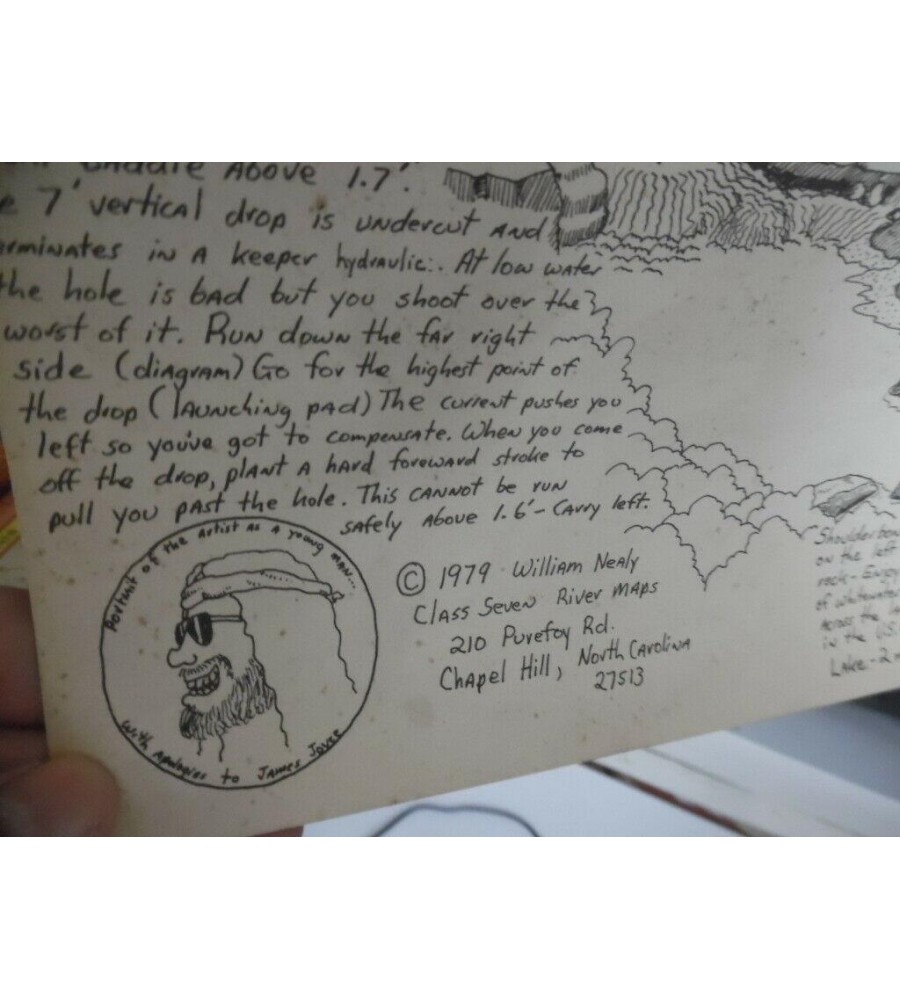 Above 1.7'.
7' vertical drop is undercut and
in a keeper hydraulic. At low water
the hole is bad but you shoot over the
worst of it. Run down the far right
side (diagram) Go for the highest point of
the drop (launching pad) The current pushes you
left so you've got to compensate. When you come
off the drop, plant a hard foreward stroke to
pull you past the hole. This cannot be run
safely above 1.6' - Carry left.
Portrait of the artist as a young man...
With apologies to James Joyce
© 1979 William Nealy
Class Seven River Maps
210 Purefoy Rd.
Chapel Hill, North Carolina
27513
Shoulder
on the left
rock - Enjoy
of whitewater
across the
in the U.S.
Lake - 2